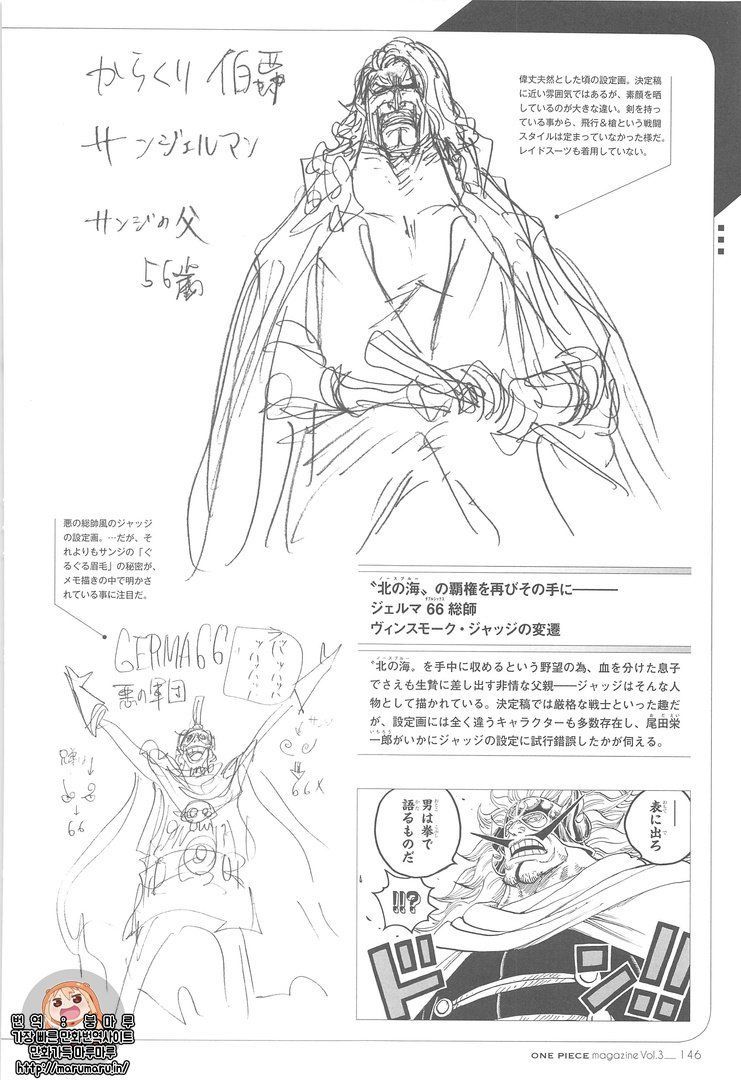 からくり 伯爵
サンジェルマン
サンジの父
56歳
偉丈夫然とした頃の設定画。決定稿
に近い雰囲気ではあるが、素顔を晒
しているのが大きな違い。剣を持っ
ている事から、飛行&槍という戦闘
スタイルは定まっていなかった様だ。
レイドスーツも着用していない。
悪の総帥風のジャッジ
の設定画。…だが、そ
れよりもサンジの「ぐ
るぐる眉毛」の秘密が、
メモ描きの中で明かさ
れている事に注目だ。
GERMA66
悪の軍団
サンジ
66
66
〝北の海〟の覇権を再びその手に———
ノースブルー
ジェルマ 66 総帥
ダブルシックス
ヴィンスモーク・ジャッジの変遷
〝北の海〟を手中に収めるという野望の為、血を分けた息子
ノースブルー
でさえも生贄に差し出す非情な父親——ジャッジはそんな人
物として描かれている。決定稿では厳格な戦士といった趣だ
が、設定画には全く違うキャラクターも多数存在し、尾田栄
一郎がいかにジャッジの設定に試行錯誤したかが伺える。
表に出ろ
——
男は拳で
語るものだ
!!?
ドン
번역 : 붕마루
가장빠른 만화번역사이트
만화가득마루마루
http://marumaru.in/
ONE PIECE magazine Vol.3__ 146